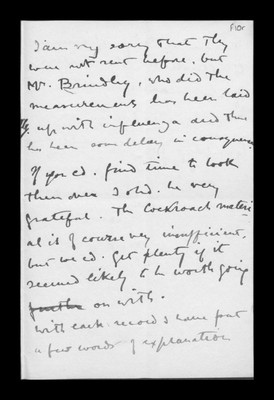 F10r
I am very sorry that they
were not sent before, but
Mr. Brindley, who did the
measurements has been laid
up with influenza and thus
has been some delay in consequence
If you cd. find time to look
them over I shd. be very
grateful. The Cockroach materi-
al is of course very insufficient,
but we cd. get plenty if it
seemed likely to be worth going
further on with.
with each record I have put
a few words of explanation